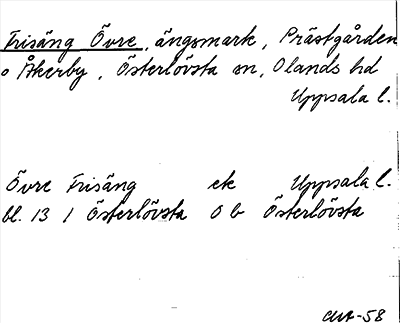 Frisäng Övre, ängsmark, Prästgården
o Åkerby, Österlövsta sn, Olands hd
Uppsala l.
Övre Frisäng ek Uppsala l.
bl. 13 1 Österlövsta ob Österlövsta
-58